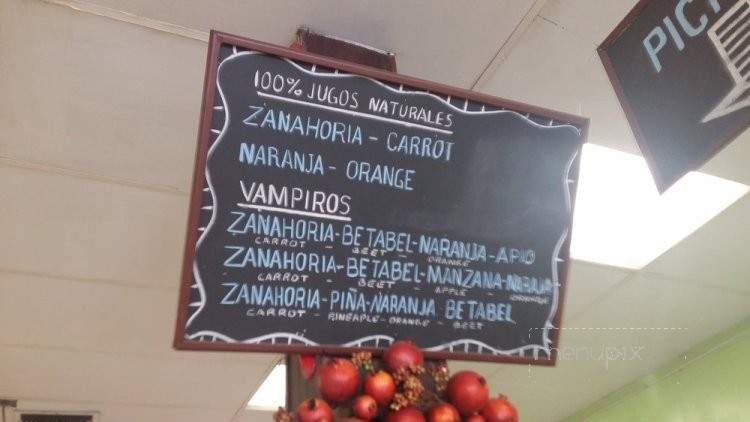 100% JUGOS NATURALES
ZANAHORIA - CARROT
NARANJA - ORANGE
VAMPIROS
ZANAHORIA-BETABEL-NARANJA-APIO
CARROT - BEET - ORANGE
ZANAHORIA-BETABEL-MANZANA-NARANJA
CARROT - BEET - APPLE - ORANGE
ZANAHORIA-PIÑA-NARANJA BETABEL
CARROT - PINEAPLE-ORANGE - BEET
PIC
menupix